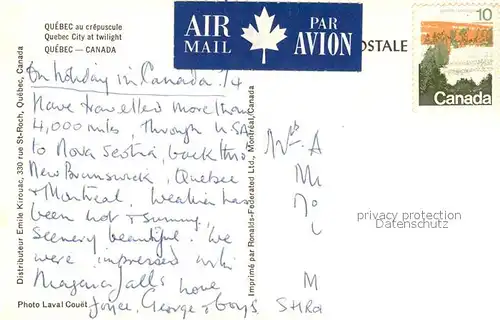 QUÉBEC au crépuscule
Quebec City at twilight
QUÉBEC — CANADA
AIR MAIL PAR AVION
POSTALE
10
Canada
On holiday in Canada
Have travelled more than
4,000 miles, through USA
to Nova Scotia, back thro
New Brunswick, Quebec
& Montreal, Weather has
been hot & sunny,
Scenery beautiful. We
were impressed with
Niagara falls. Love
Joyce, George & boys
privacy protection
Datenschutz
Distributeur Emile Kirouac, 330 rue St-Roch, Québec, Canada
Imprimé par Ronalds-Federated Ltd., Montréal, Canada
Photo Laval Couët